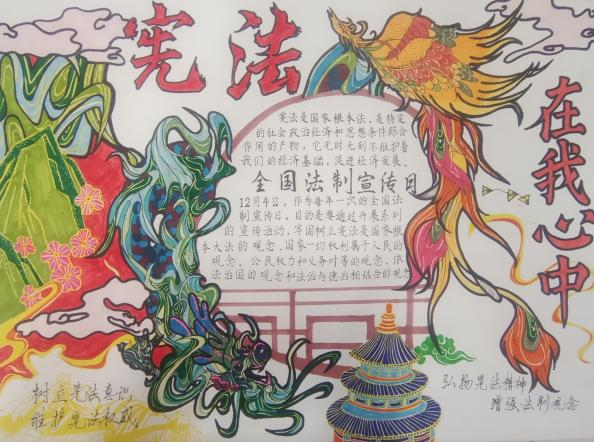 宪法
在我心中
宪法是国家根本法，是特定
的社会政治经济和思想条件综合
作用的产物，它无时无刻不维护着
我们的经济基础，促进经济发展。
全国法制宣传日
12月4日，作为每年一次的全国法
制宣传日，目的是要通过开展系列
的宣传活动，牢固树立宪法是国家根
本大法的观念、国家一切权利属于人民的
观念、公民权力和义务对等的观念、依
法治国的观念和法治与德治相结合的观念
树立宪法意识
维护宪法权威
弘扬宪法精神
增强法制观念